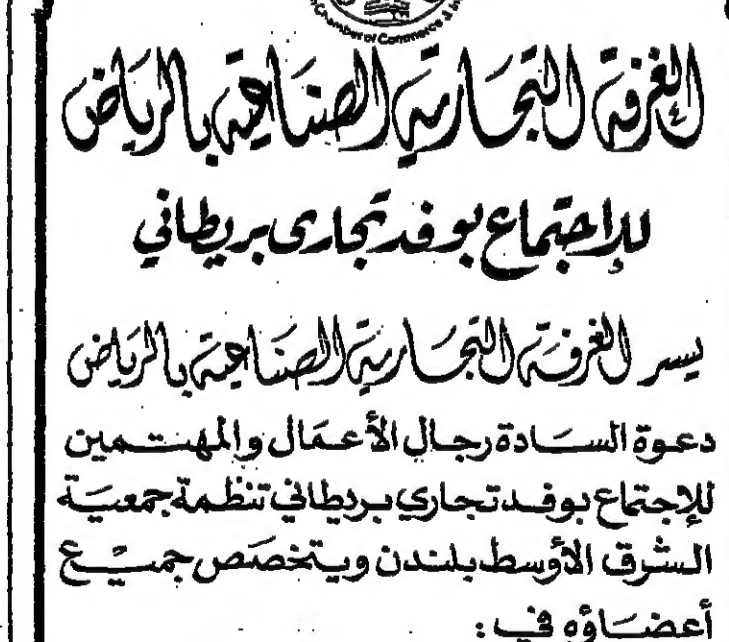 Chamber of Commerce & In
الغرفة التجارية الصناعية بالرياض
للإجتماع بوفد تجارى بريطاني
يسر الغرفة التجارية الصناعية بالرياض
دعوة السادة رجال الأعمال والمهتمين
للإجتماع بوفد تجاري بريطاني تنظمة جمعية
الشرق الأوسط بلندن ويتخصص جميع
أعضاؤه في :